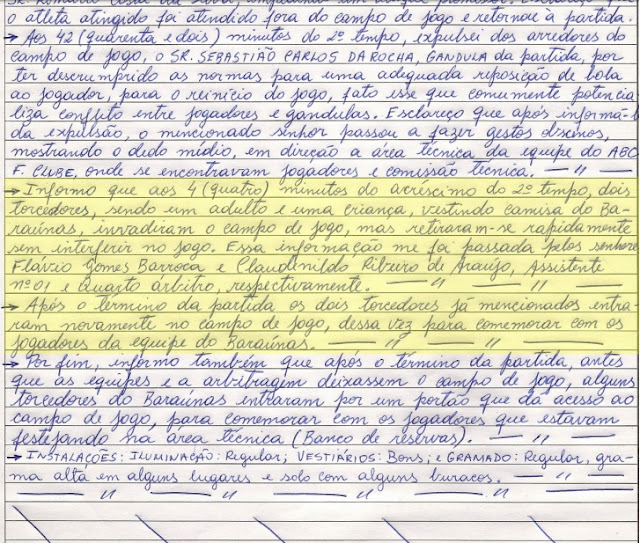 o atleta atingido foi atendido fora do campo de jogo e retornou à partida.
→ Aos 42 (quarenta e dois) minutos do 2º tempo, expulsei dos arredores do
campo de jogo, o SR. SEBASTIÃO CARLOS DA ROCHA, GANDULA da partida, por
ter descumprido as normas para uma adequada reposição de bola
ao jogador, para o reinício do jogo, fato esse que comumente potencia
liza conflito entre jogadores e gandulas. Esclareço que após informá-lo
da expulsão, o mencionado senhor passou a fazer gestos obscenos,
mostrando o dedo médio, em direção a área técnica da equipe do ABC
F. CLUBE, onde se encontravam jogadores e comissão técnica. — " —
→ Informo que aos 4 (quatro) minutos do acréscimo do 2º tempo, dois
torcedores, sendo um adulto e uma criança, vestindo camisa do Ba-
raúnas, invadiram o campo de jogo, mas retiraram-se rapidamente
sem interferir no jogo. Essa informação me foi passada pelos senhores
Flávio Gomes Barroca e Claudinildo Ribeiro de Araújo, Assistente
nº 01 e Quarto árbitro, respectivamente. — " — " —
→ Após o término da partida os dois torcedores já mencionados entra
ram novamente no campo de jogo, dessa vez para comemorar com os
jogadores da equipe do Baraúnas. — " — " —
→ Por fim, informo também que após o término da partida, antes
que as equipes e a arbitragem deixassem o campo de jogo, alguns
torcedores do Baraúnas entraram por um portão que dá acesso ao
campo de jogo, para comemorar com os jogadores que estavam
festejando na área técnica (Banco de reservas). — " —
→ INSTALAÇÕES: ILUMINAÇÃO: Regular; VESTIÁRIOS: Bons; e GRAMADO: Regular, gra-
ma alta em alguns lugares e solo com alguns buracos. — " —
— " — " — " —